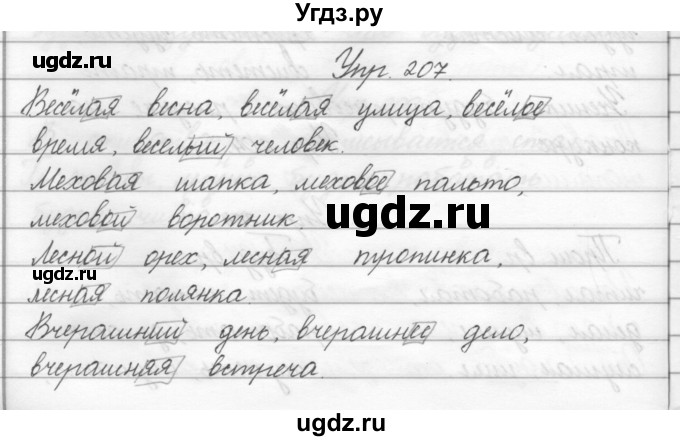 Угдз.ру
ugdz.ru ugdz.ru
Упр. 207.
Весёлая весна, весёлая улица, весёлое
время, веселый человек.
Меховая шапка, меховое пальто,
меховой воротник.
ugdz.ru
Лесной орех, лесная тропинка,
ugdz.ru
лесная полянка.
Вчерашний день, вчерашнее дело,
вчерашняя встреча.
ugdz.ru ugdz.ru
ugdz.ru